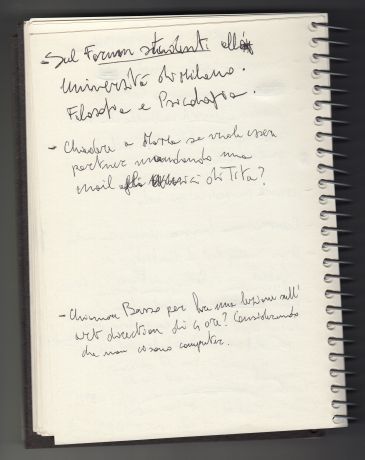 - Sul Forum studenti all'
Università di Milano.
Filosofia e Psicologia.
- Chiedere a Maria se vuole essere
partner mandando una
mail agli amici di Tita?
- Chiamare Basso per fare una lezione sull'
art direction di 4 ore? Considerando
che non ci sono computer.